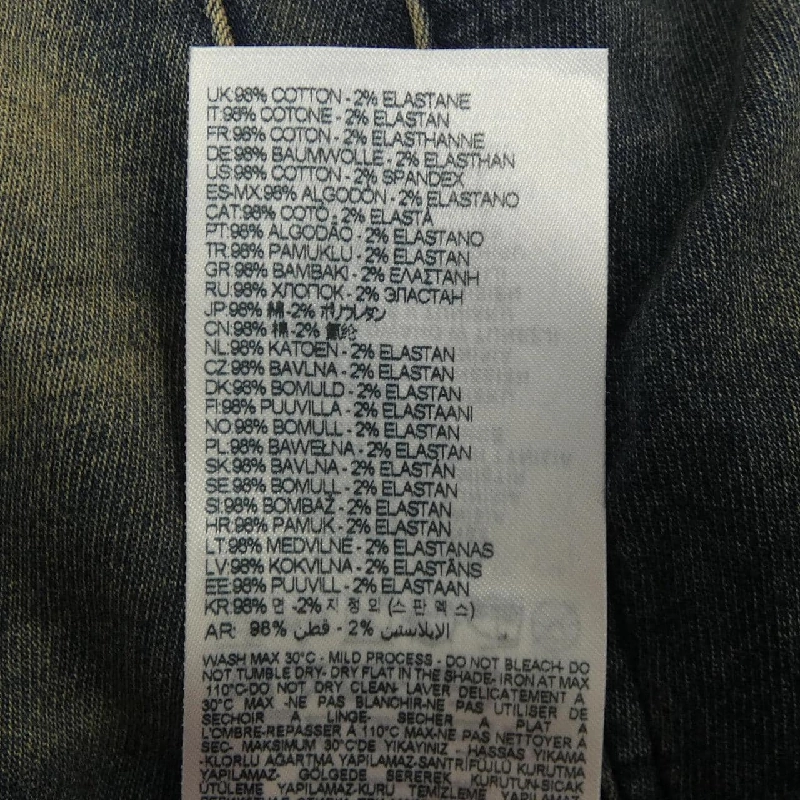 UK:98% COTTON - 2% ELASTANE
IT:98% COTONE - 2% ELASTAN
FR:98% COTON - 2% ELASTHANNE
DE:98% BAUMWOLLE - 2% ELASTHAN
US:98% COTTON - 2% SPANDEX
ES-MX:98% ALGODÓN - 2% ELASTANO
CAT:98% COTÓ - 2% ELASTÀ
PT:98% ALGODÃO - 2% ELASTANO
TR:98% PAMUKLU - 2% ELASTAN
GR:98% ΒΑΜΒΑΚΙ - 2% ΕΛΑΣΤΑΝΗ
RU:98% ХЛОПОК - 2% ЭЛАСТАН
JP:98% 綿 -2% ポリウレタン
CN:98% 棉 -2% 氨纶
NL:98% KATOEN - 2% ELASTAN
CZ:98% BAVLNA - 2% ELASTAN
DK:98% BOMULD - 2% ELASTAN
FI:98% PUUVILLA - 2% ELASTAANI
NO:98% BOMULL - 2% ELASTAN
PL:98% BAWEŁNA - 2% ELASTAN
SK:98% BAVLNA - 2% ELASTAN
SE:98% BOMULL - 2% ELASTAN
SI:98% BOMBAŽ - 2% ELASTAN
HR:98% PAMUK - 2% ELASTAN
LT:98% MEDVILNĖ - 2% ELASTANAS
LV:98% KOKVILNA - 2% ELASTĀNS
EE:98% PUUVILL - 2% ELASTAAN
KR:98% 면 -2% 지 정 외 (스 판 덱 스)
AR: 98% قطن - 2% الإيلاستين
WASH MAX 30°C - MILD PROCESS - DO NOT BLEACH- DO
NOT TUMBLE DRY- DRY FLAT IN THE SHADE- IRON AT MAX
110°C-DO NOT DRY CLEAN- LAVER DELICATEMENT A
30°C MAX -NE PAS BLANCHIR-NE PAS UTILISER DE
SECHOIR A LINGE- SECHER A PLAT A
L'OMBRE-REPASSER À 110°C MAX-NE PAS NETTOYER À
SEC- MAKSIMUM 30°C'DE YIKAYINIZ - HASSAS YIKAMA
-KLORLU AĞARTMA YAPILAMAZ-SANTRİFÜJLÜ KURUTMA
YAPILAMAZ- GÖLGEDE SEREREK KURUTUN-SICAK
ÜTÜLEME YAPILAMAZ-KURU TEMİZLEME YAPILAMAZ